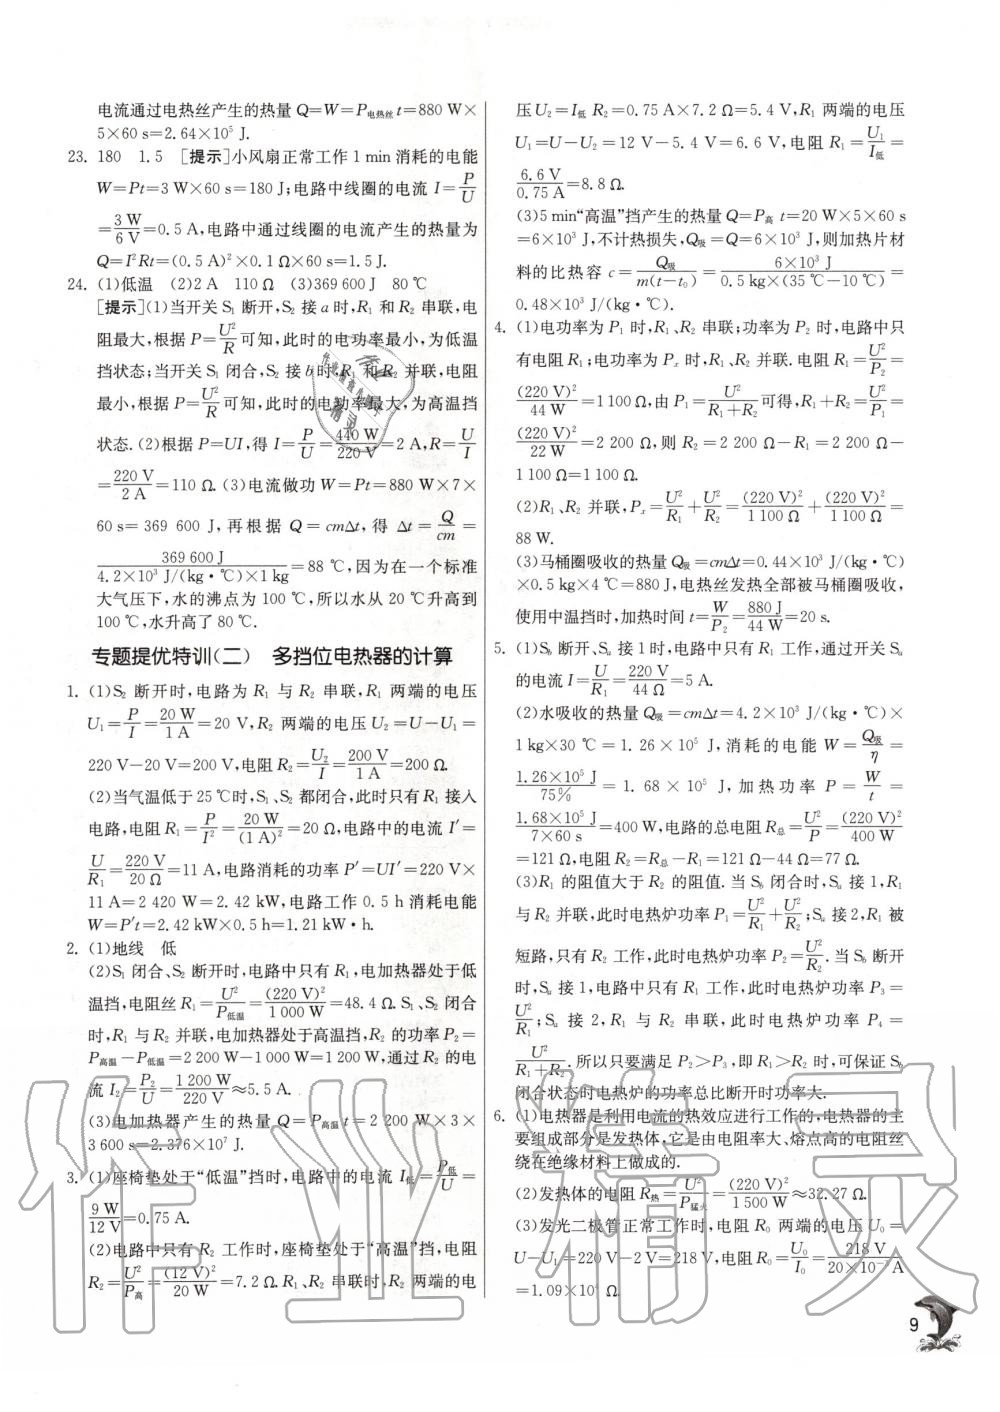 电流通过电热丝产生的热量 Q=W=P电热丝 t=880 W×
5×60 s=2.64×10⁵ J.
23. 180 1.5 [提示]小风扇正常工作 1 min 消耗的电能
W=Pt=3 W×60 s=180 J;电路中线圈的电流 I=P/U
=3 W/6 V=0.5 A,电路中通过线圈的电流产生的热量为
Q=I²Rt=(0.5 A)²×0.1 Ω×60 s=1.5 J.
24. (1)低温 (2)2 A 110 Ω (3)369 600 J 80 ℃
[提示](1)当开关 S₁ 断开,S₂ 接 a 时,R₁ 和 R₂ 串联,电
阻最大,根据 P=U²/R 可知,此时的电功率最小,为低温
挡状态;当开关 S₁ 闭合,S₂ 接 b 时,R₁ 和 R₂ 并联,电阻
最小,根据 P=U²/R 可知,此时的电功率最大,为高温挡
状态.(2)根据 P=UI,得 I=P/U=440 W/220 V=2 A,R=U/I
=220 V/2 A=110 Ω.(3)电流做功 W=Pt=880 W×7×
60 s=369 600 J,再根据 Q=cmΔt,得 Δt=Q/cm=
369 600 J/4.2×10³ J/(kg·℃)×1 kg=88 ℃,因为在一个标准
大气压下,水的沸点为 100 ℃,所以水从 20 ℃升高到
100 ℃,水升高了 80 ℃.
专题提优特训(二) 多挡位电热器的计算
1. (1)S₂ 断开时,电路为 R₁ 与 R₂ 串联,R₁ 两端的电压
U₁=P/I=20 W/1 A=20 V,R₂ 两端的电压 U₂=U-U₁=
220 V-20 V=200 V,电阻 R₂=U₂/I=200 V/1 A=200 Ω.
(2)当气温低于 25 ℃时,S₁、S₂ 都闭合,此时只有 R₁ 接入
电路,电阻 R₁=P/I²=20 W/(1 A)²=20 Ω,电路中的电流 I′=
U/R₁=220 V/20 Ω=11 A,电路消耗的功率 P′=UI′=220 V×
11 A=2 420 W=2.42 kW,电路工作 0.5 h 消耗电能
W=P′t=2.42 kW×0.5 h=1.21 kW·h.
2. (1)地线 低
(2)S₁ 闭合、S₂ 断开时,电路中只有 R₁,电加热器处于低
温挡,电阻丝 R₁=U²/P低温=(220 V)²/1 000 W=48.4 Ω.S₁、S₂ 闭合
时,R₁ 与 R₂ 并联,电加热器处于高温挡,R₂ 的功率 P₂=
P高温-P低温=2 200 W-1 000 W=1 200 W,通过 R₂ 的电
流 I₂=P₂/U=1 200 W/220 V≈5.5 A.
(3)电加热器产生的热量 Q=P高温 t=2 200 W×3×
3 600 s=2.376×10⁷ J.
3. (1)座椅垫处于“低温”挡时,电路中的电流 I低=P低/U=
9 W/12 V=0.75 A.
(2)电路中只有 R₂ 工作时,座椅垫处于“高温”挡,电阻
R₂=U²/P高=(12 V)²/20 W=7.2 Ω.R₁、R₂ 串联时,R₂ 两端的电
压 U₂=I低 R₂=0.75 A×7.2 Ω=5.4 V,R₁ 两端的电压
U₁=U-U₂=12 V-5.4 V=6.6 V,电阻 R₁=U₁/I低=
6.6 V/0.75 A=8.8 Ω.
(3)5 min“高温”挡产生的热量 Q=P高 t=20 W×5×60 s
=6×10³ J,不计热损失,Q吸=Q=6×10³ J,则加热片材
料的比热容 c=Q吸/m(t-t₀)=6×10³ J/0.5 kg×(35 ℃-10 ℃)=
0.48×10³ J/(kg·℃).
4. (1)电功率为 P₁ 时,R₁、R₂ 串联;功率为 P₂ 时,电路中只
有电阻 R₁;电功率为 Pₓ 时,R₁、R₂ 并联.电阻 R₁=U²/P₂=
(220 V)²/44 W=1 100 Ω,由 P₁=U²/R₁+R₂可得,R₁+R₂=U²/P₁=
(220 V)²/22 W=2 200 Ω,则 R₂=2 200 Ω-R₁=2 200 Ω-
1 100 Ω=1 100 Ω.
(2)R₁、R₂ 并联,Pₓ=U²/R₁+U²/R₂=(220 V)²/1 100 Ω+(220 V)²/1 100 Ω=
88 W.
(3)马桶圈吸收的热量 Q吸=cmΔt=0.44×10³ J/(kg·℃)
×0.5 kg×4 ℃=880 J,电热丝发热全部被马桶圈吸收,
使用中温挡时,加热时间 t=W/P₂=880 J/44 W=20 s.
5. (1)Sb断开、Sa 接 1 时,电路中只有 R₁ 工作,通过开关 Sa
的电流 I=U/R₁=220 V/44 Ω=5 A.
(2)水吸收的热量 Q吸=cmΔt=4.2×10³ J/(kg·℃)×
1 kg×30 ℃=1.26×10⁵ J,消耗的电能 W=Q吸/η=
1.26×10⁵ J/75%=1.68×10⁵ J,加热功率 P=W/t=
1.68×10⁵ J/7×60 s=400 W,电路的总电阻 R总=U²/P=(220 V)²/400 W
=121 Ω,电阻 R₂=R总-R₁=121 Ω-44 Ω=77 Ω.
(3)R₁ 的阻值大于 R₂ 的阻值.当 Sb 闭合时,Sa 接 1,R₁
与 R₂ 并联,此时电热炉功率 P₁=U²/R₁+U²/R₂;Sa 接 2,R₁ 被
短路,只有 R₂ 工作,此时电热炉功率 P₂=U²/R₂.当 Sb 断开
时,Sa 接 1,电路中只有 R₁ 工作,此时电热炉功率 P₃=
U²/R₁;Sa 接 2,R₁ 与 R₂ 串联,此时电热炉功率 P₄=
U²/R₁+R₂.所以只要满足 P₂>P₃,即 R₁>R₂ 时,可保证 Sb
闭合状态时电热炉的功率总比断开时功率大.
6. (1)电热器是利用电流的热效应进行工作的,电热器的主
要组成部分是发热体,它是由电阻率大、熔点高的电阻丝
绕在绝缘材料上做成的.
(2)发热体的电阻 R热=U²/P猛火=(220 V)²/1 500 W≈32.27 Ω.
(3)发光二极管正常工作时,电阻 R₀ 两端的电压 U₀=
U-U₁=220 V-2 V=218 V,电阻 R₀=U₀/I₀=218 V/20×10⁻³ A
=1.09×10⁴ Ω.
9
作业精灵